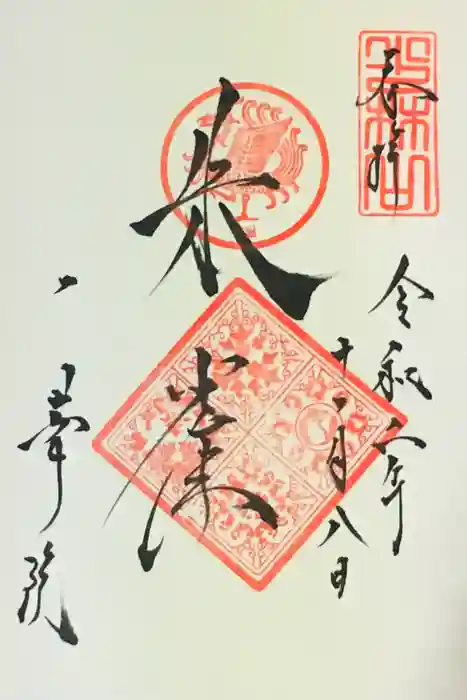 奉拝
令和六年
十一月八日
朱雀
一華院